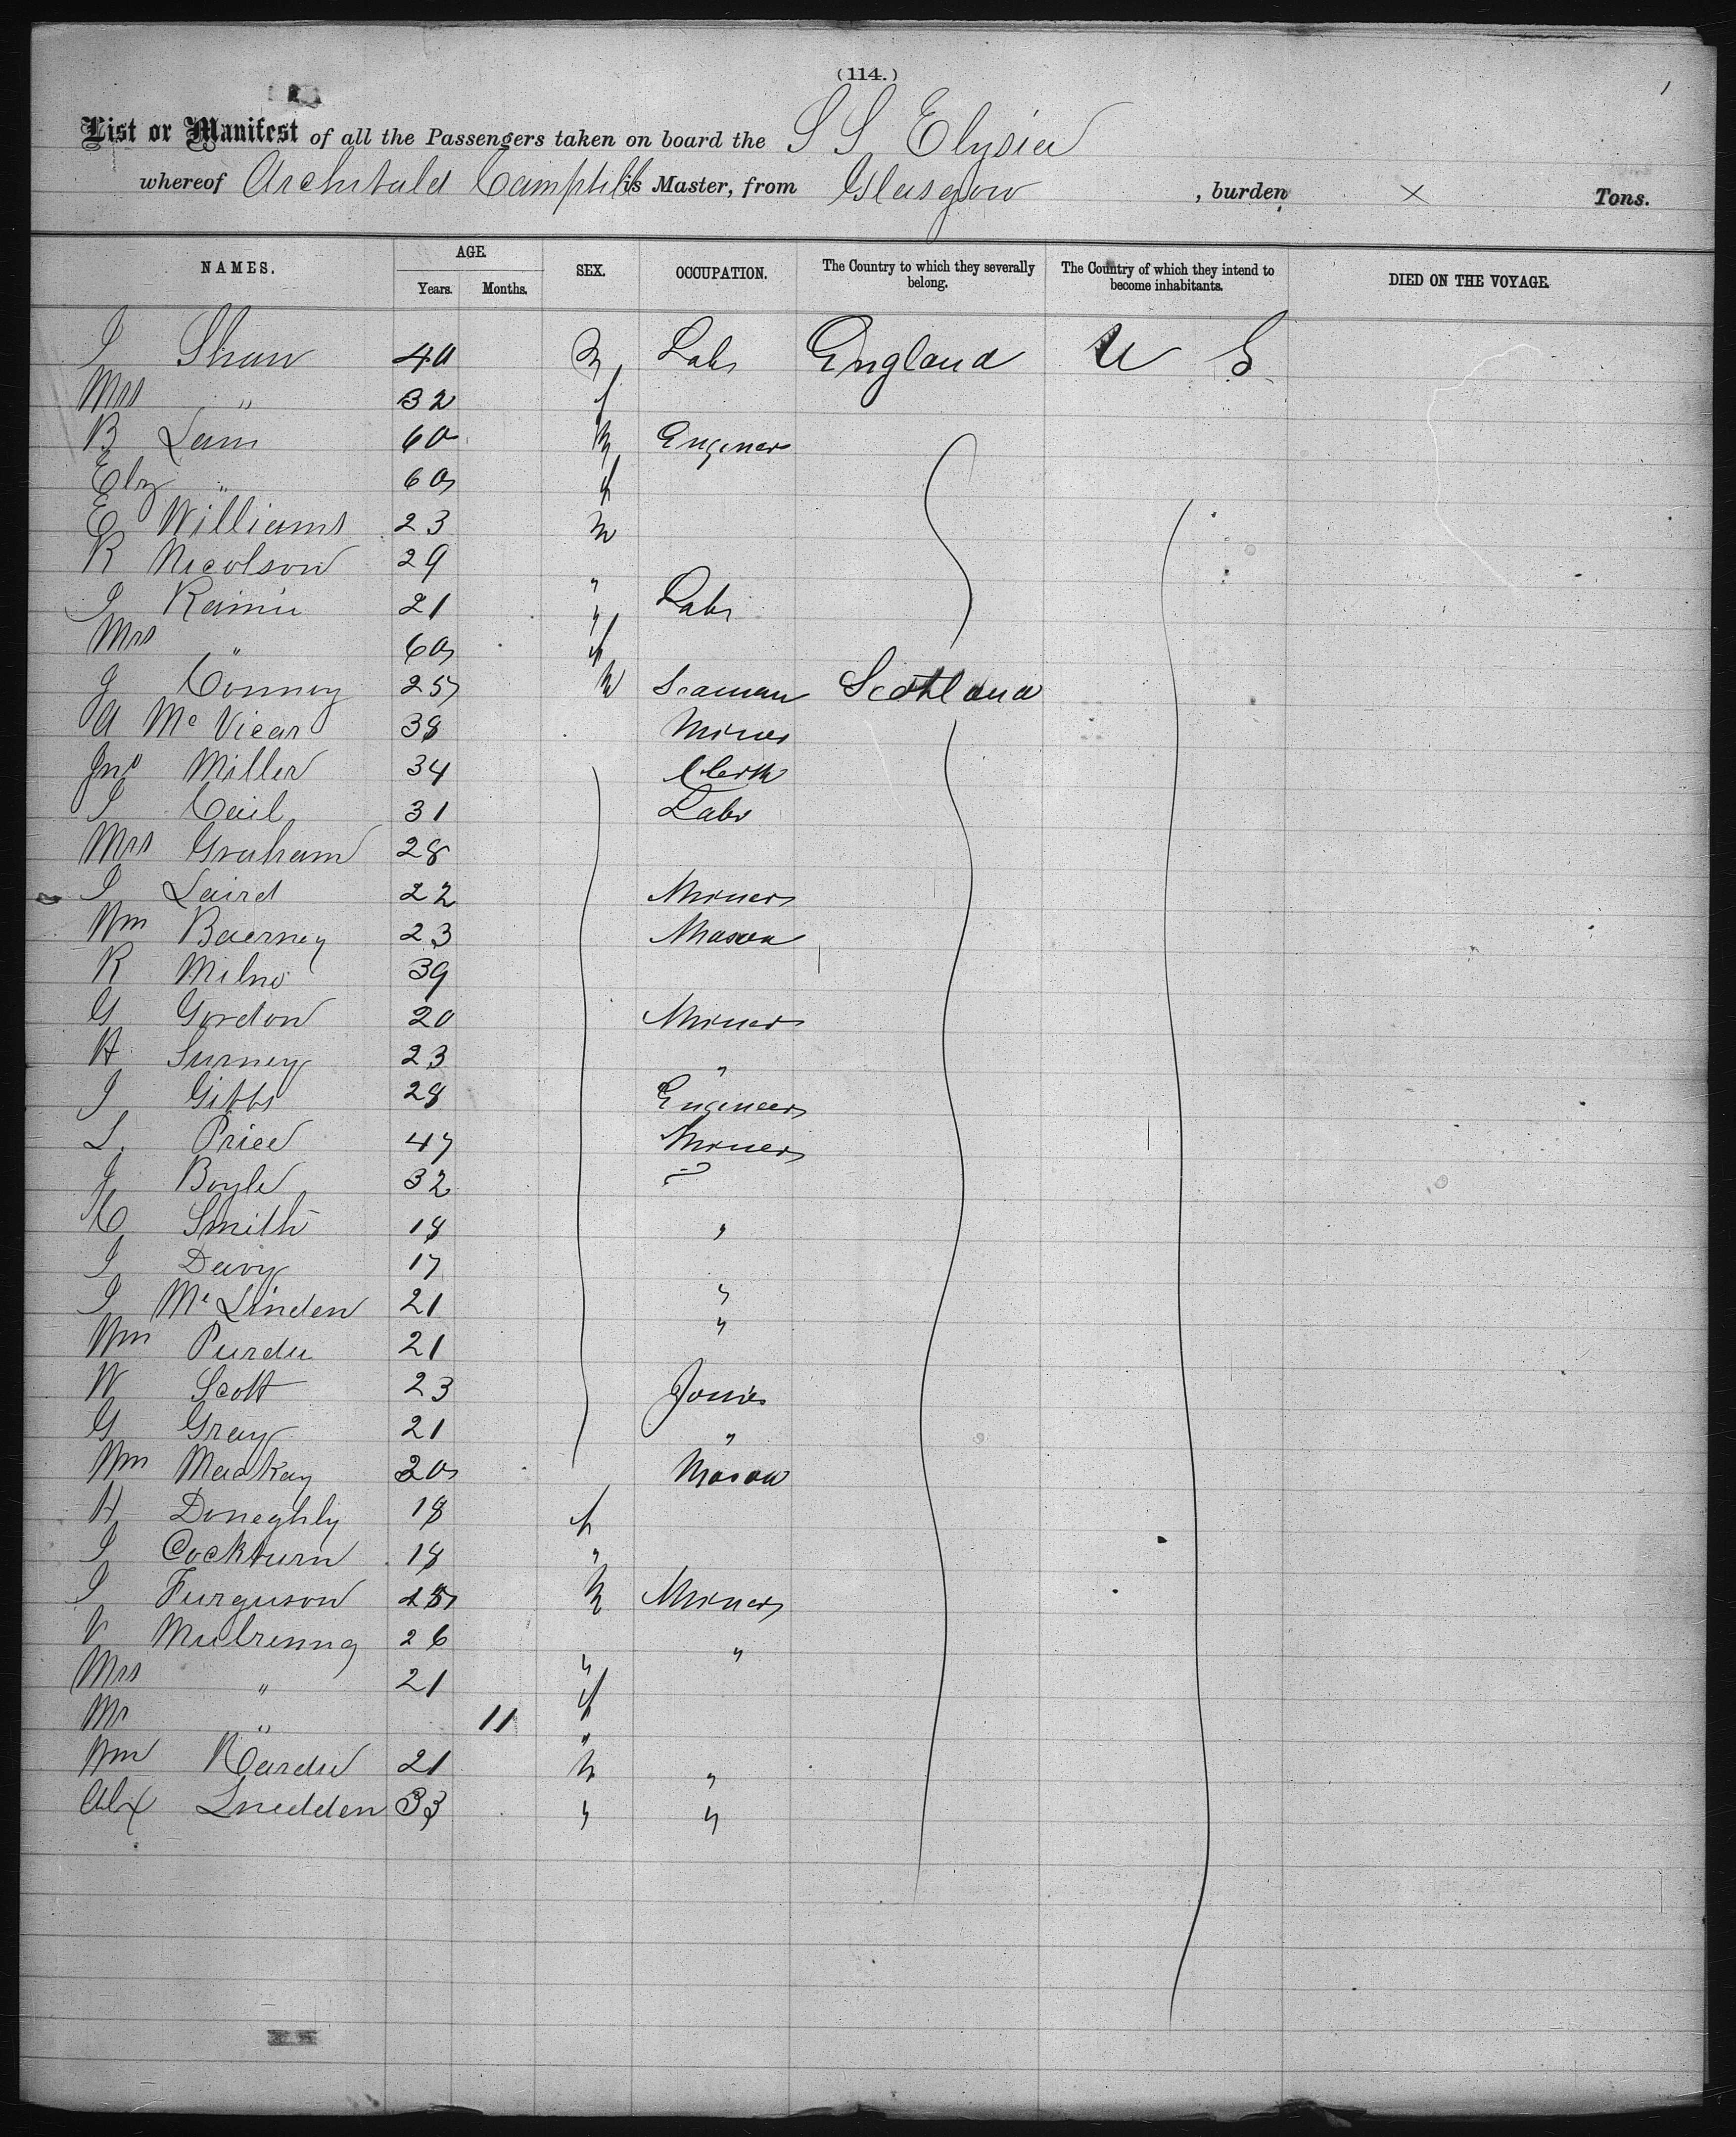 (114.)
List or Manifest of all the Passengers taken on board the S S Elysia
whereof Archibald Campbell is Master, from Glasgow , burden × Tons.
NAMES. AGE. SEX. OCCUPATION. The Country to which they severally belong. The Country of which they intend to become inhabitants. DIED ON THE VOYAGE.
Years. Months.
Shaw 40 m Labr England U S
Mrs " 32 f
B Lam 60 m Engineer
Elz " 60 f
E Williams 23 m
R Nicolson 29 "
Rainie 21 " Labr
Mrs " 60 f
J Conney 25 m Seaman Scotland
A McVicar 38 Miner
Jno Miller 34 Clerk
Cail 31 Labr
Mrs Graham 28
Laird 22 Miner
Wm Baerney 23 Mason
R Milne 39
G Gordon 20 Miner
H 23 "
Gibbs 28 Engineer
Price 47 Miner
J Boyle 32 "
Smith 18 "
Davy 17
McLinden 21 "
Wm Purdie 21 "
W Scott 23 Joiner
G Gray 21 "
Wm Mackay 20 Mason
H Doneghly 18 f
Cockburn 18 "
Furguson 25 m Miner
26 " "
Mrs " 21 f
" 11 "
Wm 21 m "
Alx Snedden 33 " "